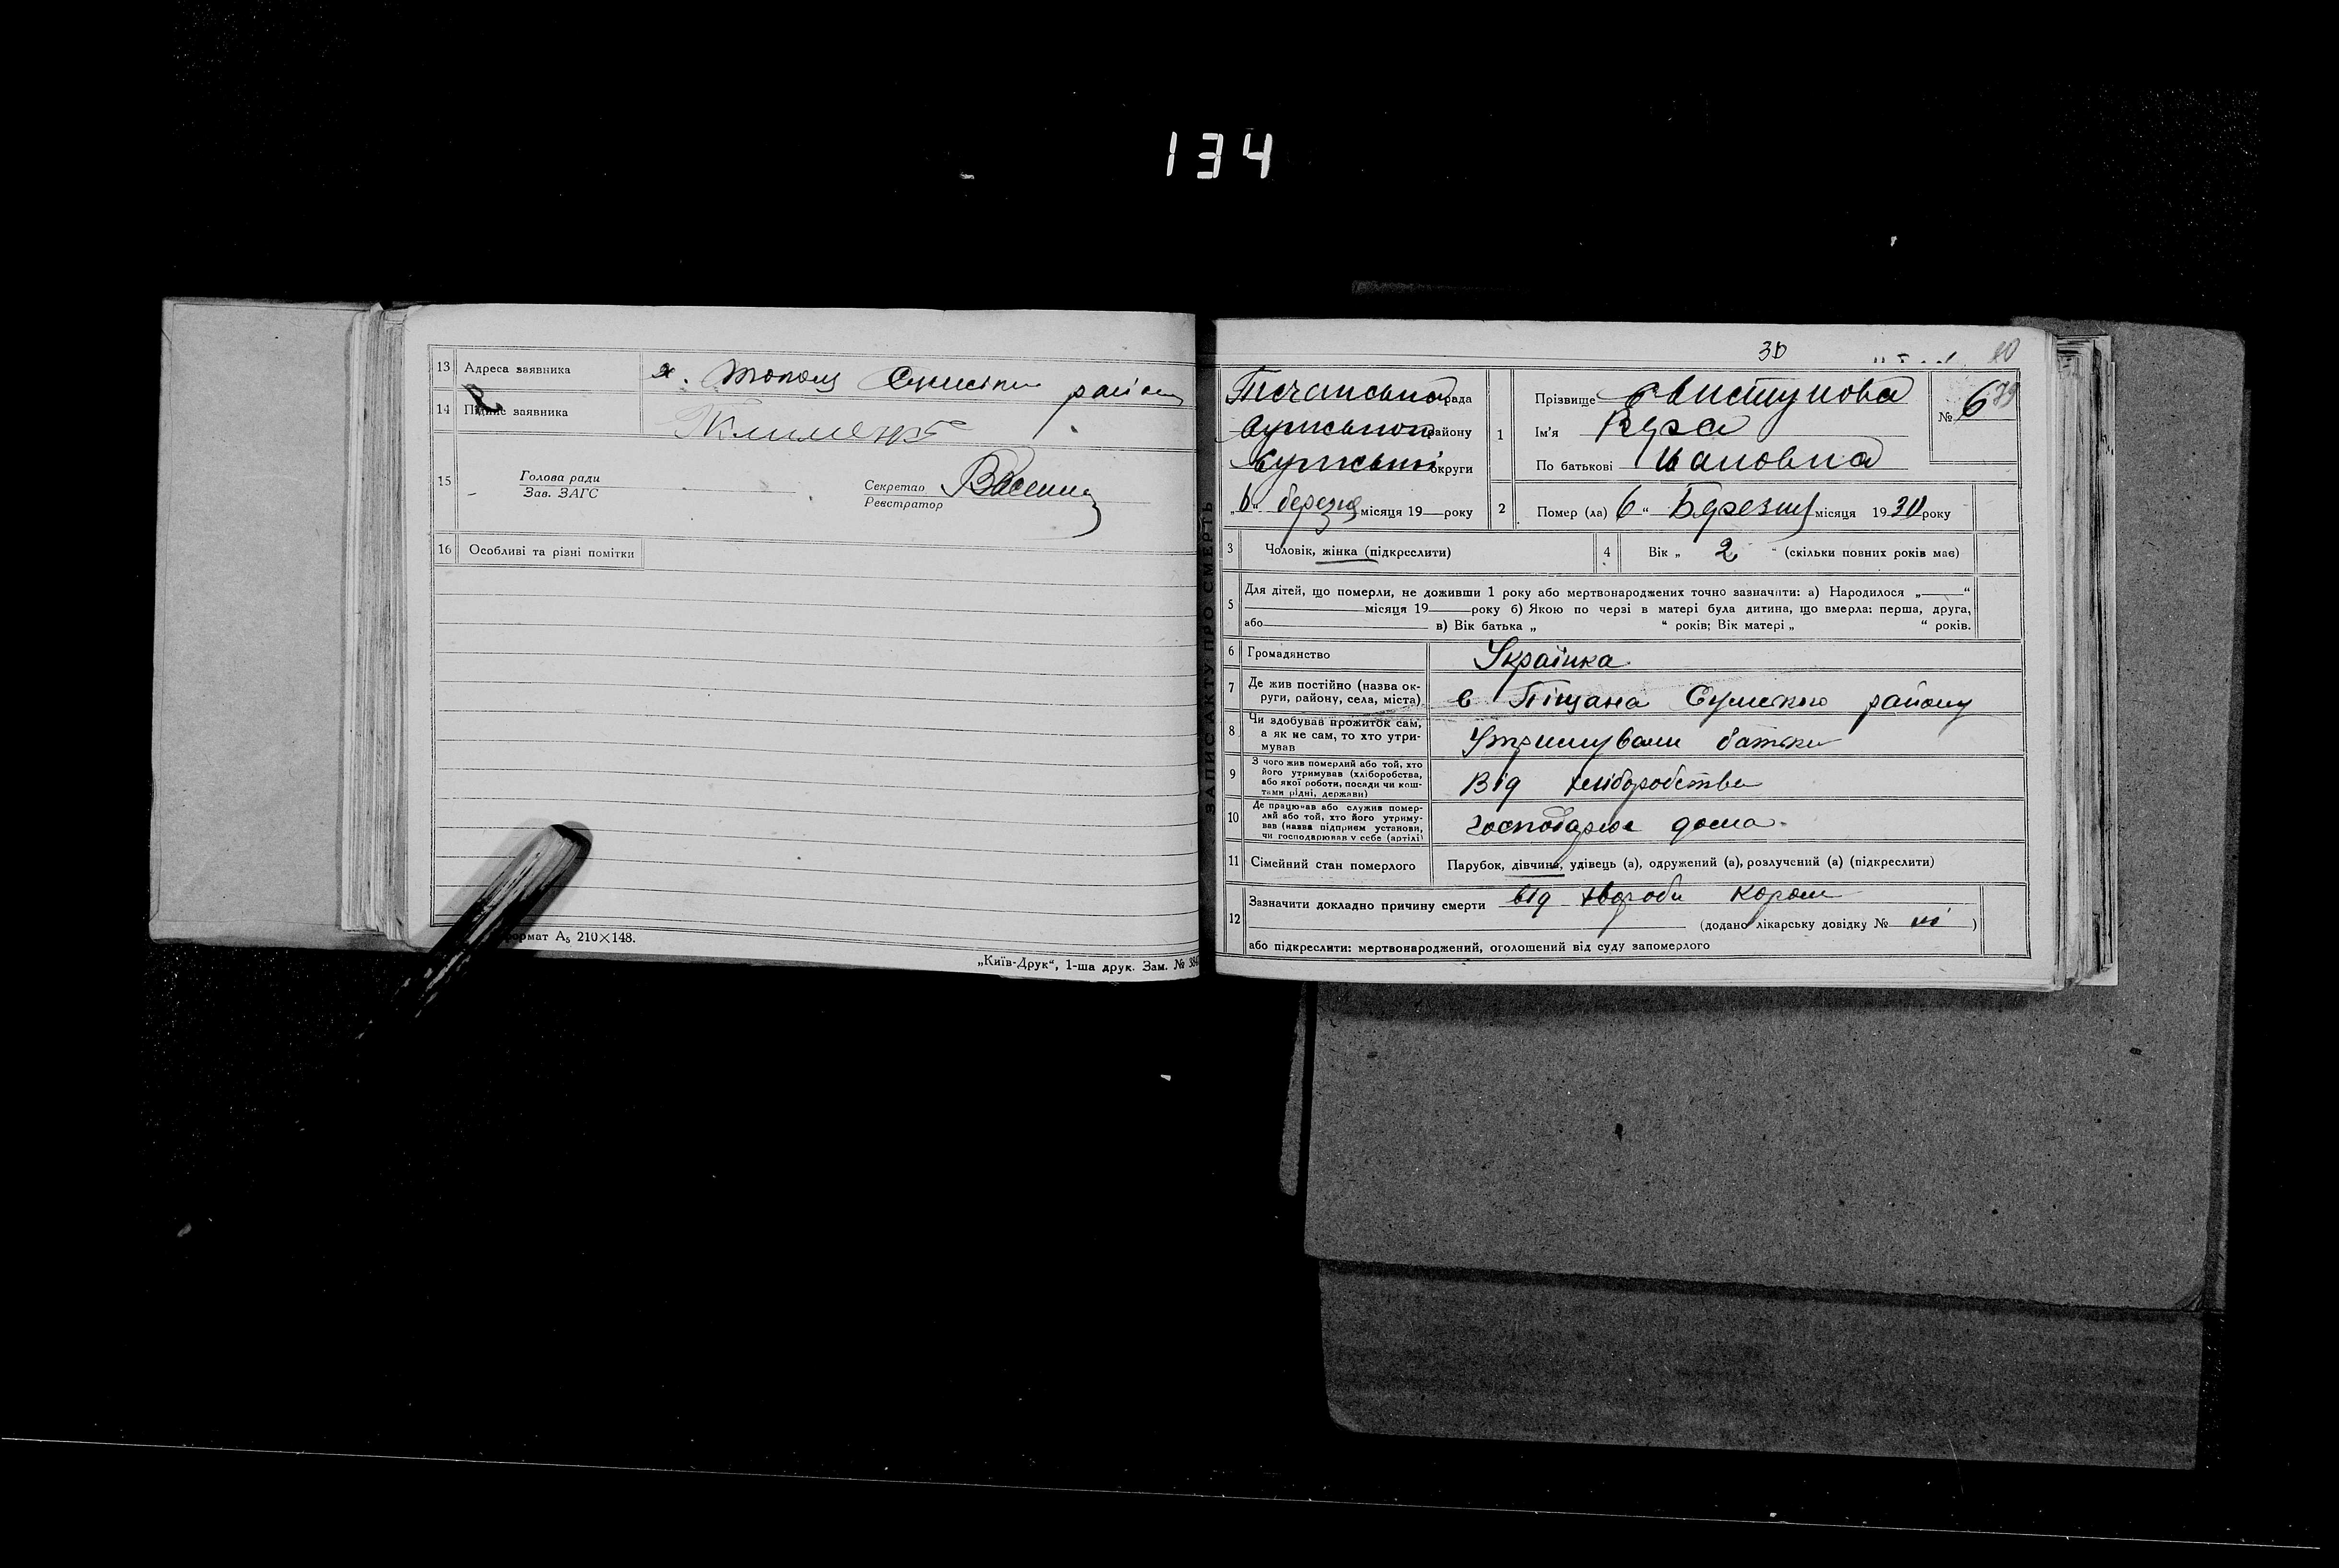 134
13 Адреса заявника х. Тополі Сумського району
14 Підпис заявника Клименко
15 Голова ради
Зав. ЗАГС
Секретар
Реєстратор
16 Особливі та різні помітки
формат А5 210×148.
„Київ-Друк“, 1-ша друк. Зам. № 384
ЗАПИС АКТУ ПРО СМЕРТЬ
30
рада
Сумського району
Сумської округи
„6“ березня місяця 19 року
1 Прізвище Свистунова
Ім'я Вера
По батькові Ивановна
№ 6
2 Помер (ла) 6 “ Березня місяця 1930 року
3 Чоловік, жінка (підкреслити)
4 Вік „ 2 “ (скільки повних років має)
5 Для дітей, що померли, не доживши 1 року або мертвонароджених точно зазначити: а) Народилося „ “
місяця 19 року б) Якою по черзі в матері була дитина, що вмерла: перша, друга,
або в) Вік батька „ “ років; Вік матері „ “ років.
6 Громадянство Українка
7 Де жив постійно (назва ок-
руги, району, села, міста) с Піщана Сумського району
8 Чи здобував прожиток сам,
а як не сам, то хто утри-
мував Утримували батьки
9 З чого жив померлий або той, хто
його утримував (хліборобства,
або якої роботи, посади чи кош-
тами рідні, держави) Від хліборобства
10 Де працював або служив помер-
лий або той, хто його утриму-
вав (назва підприєм установи,
чи господарював у себе (артілі) Господарює дома.
11 Сімейний стан померлого Парубок, дівчина, удівець (а), одружений (а), розлучений (а) (підкреслити)
12 Зазначити докладно причину смерти від хвороби корони
(додано лікарську довідку № ні )
або підкреслити: мертвонароджений, оголошений від суду запомерлого